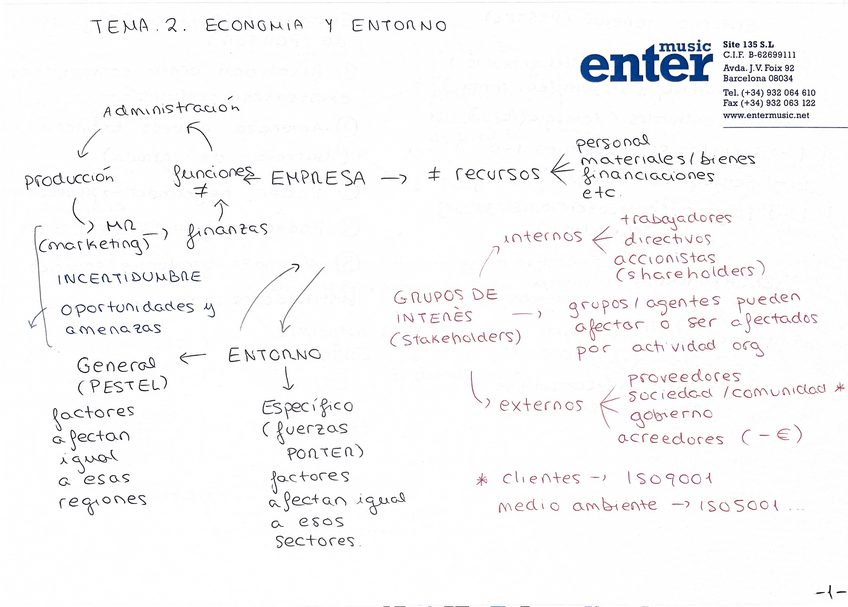 TEMA.2. ECONOMIA Y ENTORNO
music
enter
Site 135 S.L
C.I.F. B-62699111
Avda. J.V. Foix 92
Barcelona 08034
Tel. (+34) 932 064 610
Fax (+34) 932 063 122
www.entermusic.net
Administración
producción
funciones
≠
← EMPRESA → ≠ recursos
personal
materiales/bienes
financiaciones
etc.
MR
(marketing) → finanzas
INCERTIDUMBRE
oportunidades y
amenazas
General ← ENTORNO
(PESTEL)
factores
afectan
igual
a esas
regiones
Específico
(fuerzas
PORTER)
factores
afectan igual
a esos
sectores.
GRUPOS DE
INTERÈS
(Stakeholders)
internos
trabajadores
directivos
accionistas
(shareholders)
→ grupos/agentes pueden
afectar o ser afectados
por actividad org.
externos
proveedores
sociedad/comunidad *
gobierno
acreedores (-€)
* clientes → ISO9001
medio ambiente → ISO5001 ...
-1-